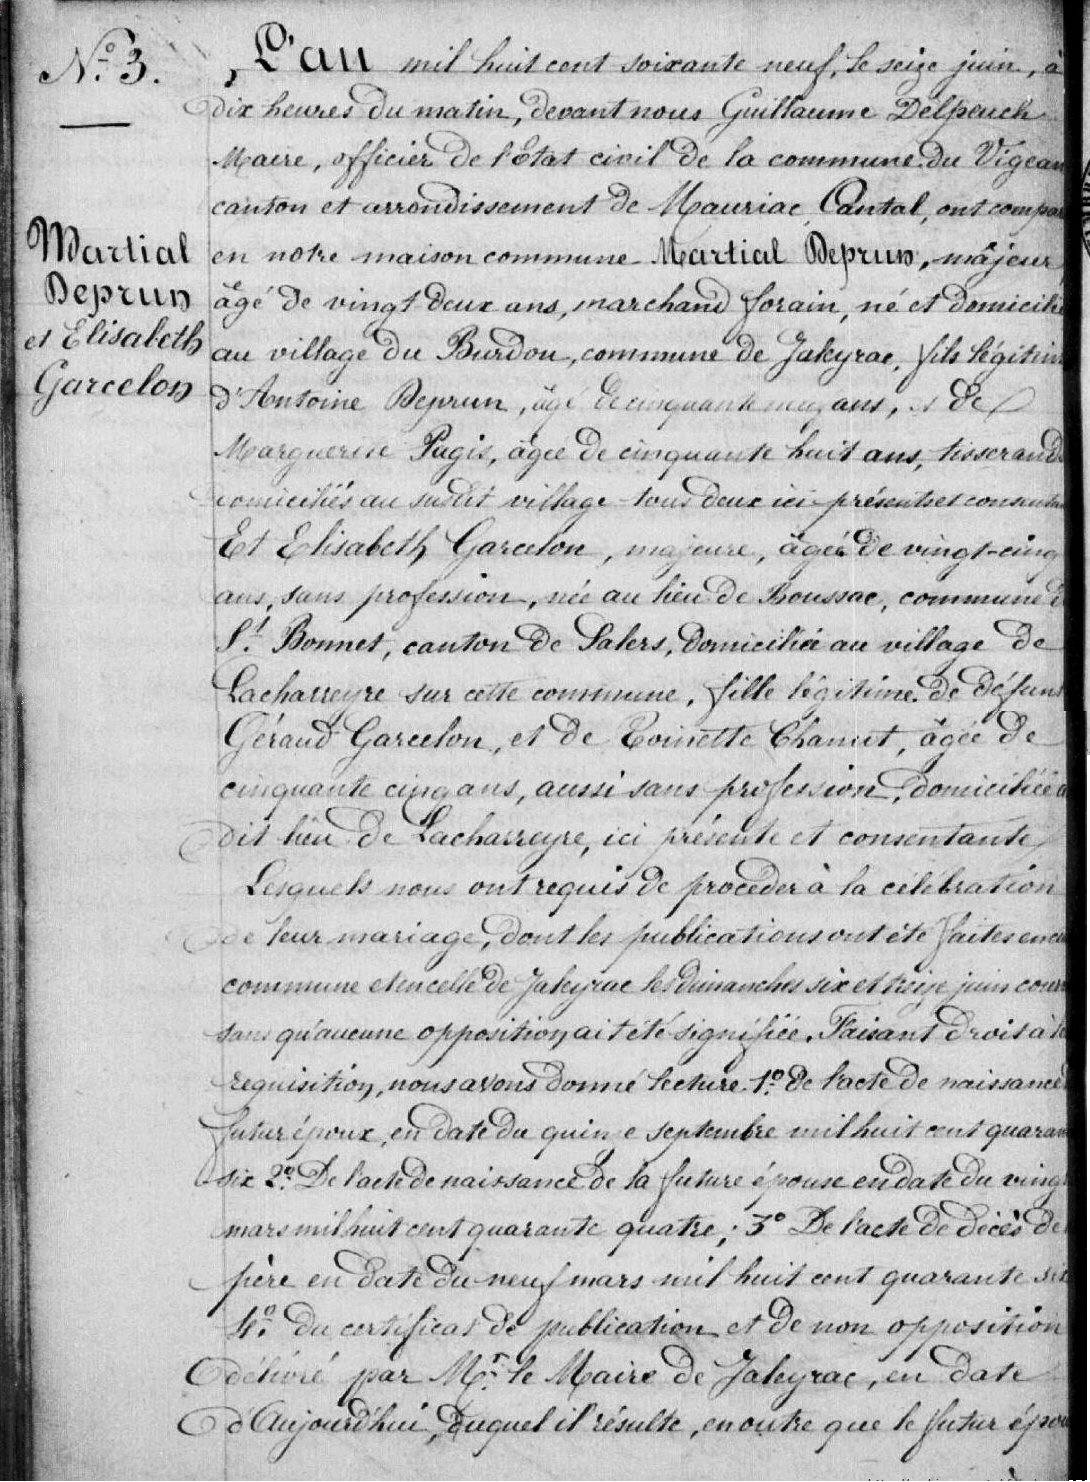 N.º 3.
Martial
Deprun
et Elisabeth
Garcelon
L'an mil huit cent soixante neuf, le seize juin, à
dix heures du matin, devant nous Guillaume Delpeuch
Maire, officier de l'Etat civil de la commune du Vigean
canton et arrondissement de Mauriac Cantal, ont compar
en notre maison commune Martial Deprun, majeur
âgé de vingt deux ans, marchand forain, né et domicilié
au village du Burdou, commune de Jaleyrac, fils légitim
d'Antoine Deprun, âgé de cinquante ans, et de
Marguerite Pagis, âgée de cinquante huit ans, tisserands
domiciliés au susdit village tous deux ici présents et consentan
Et Elisabeth Garcelon, majeure, âgée de vingt-cinq
ans, sans profession, née au lieu de Roussac, commune d
St. Bonnet, canton de Salers, domiciliée au village de
Lacharreyre sur cette commune, fille légitime de défunt
Géraud Garcelon, et de Toinette Chanut, âgée de
cinquante cinq ans, aussi sans profession, domiciliée a
dit lieu de Lacharreyre, ici présente et consentante
Lesquels nous ont requis de procéder à la célébration
de leur mariage, dont les publications ont été faites en
commune et en celle de Jaleyrac les dimanches six et treize juin cour
sans qu'aucune opposition ait été signifiée. Faisant droit à
requisition, nous avons donné lecture 1º. de l'acte de naissance
futur époux, en date du quinze septembre mil huit cent quaran
six 2º. De l'acte de naissance de la future épouse en date du vingt
mars mil huit cent quarante quatre; 3º De l'acte de décès de
père en date du neuf mars mil huit cent quarante six
4º. du certificat de publication et de non opposition
délivré par Mr. le Maire de Jaleyrac, en date
d'Aujourd'hui, duquel il résulte, en outre que le futur épou